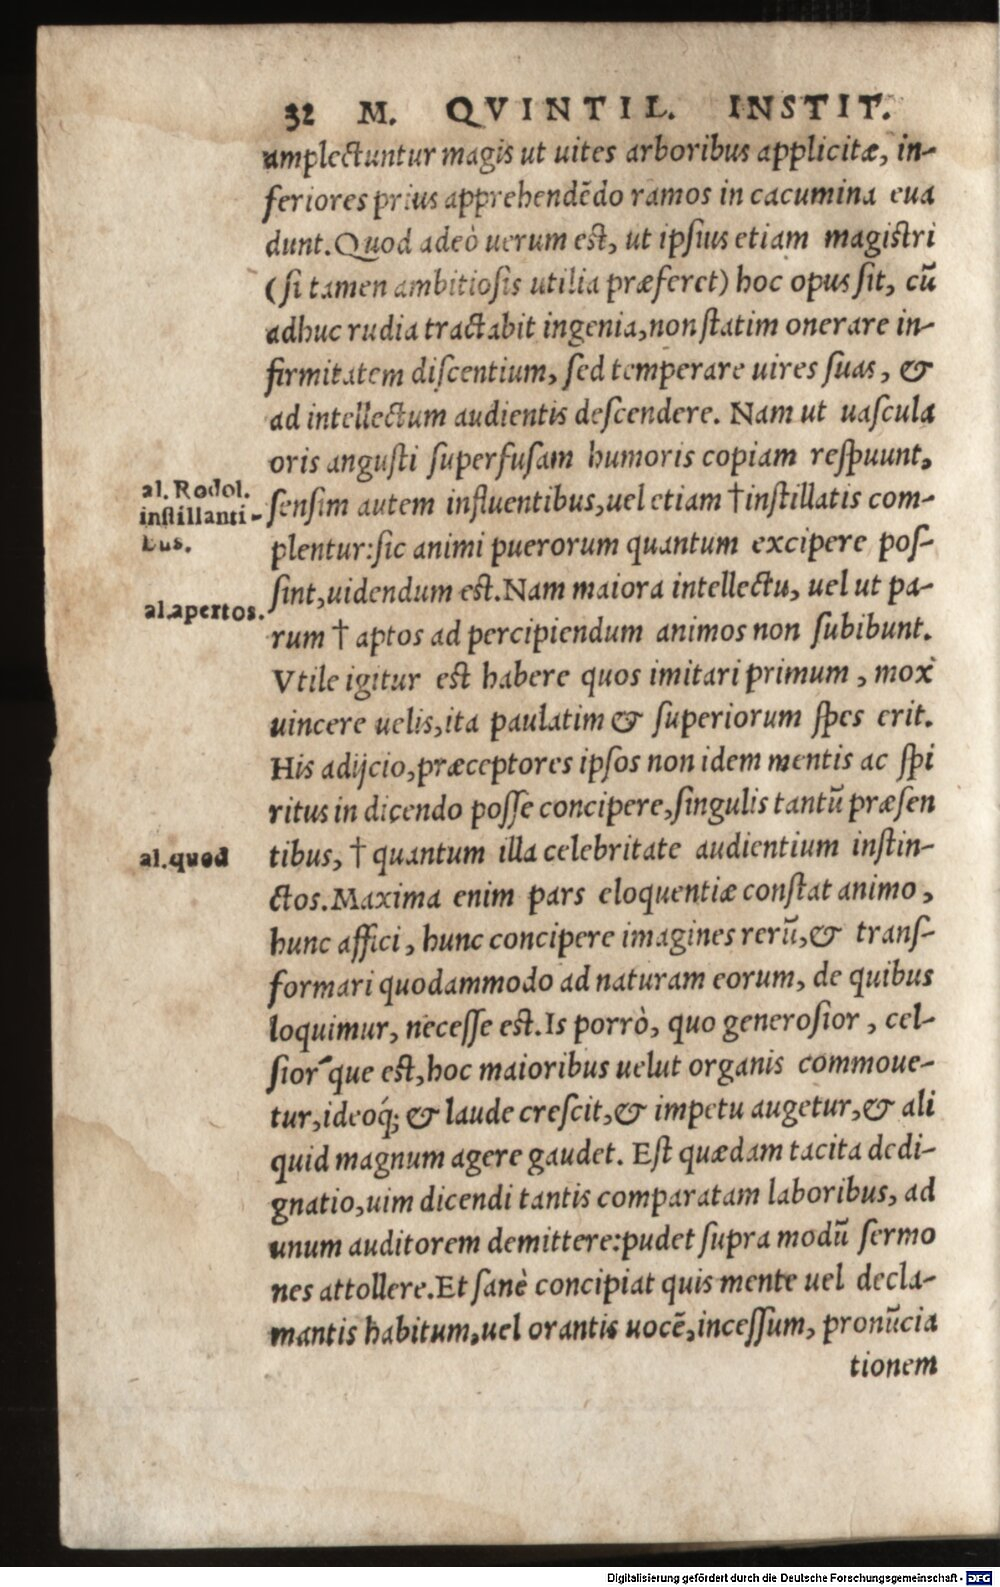 32 M. QVINTIL. INSTIT.
amplectuntur magis ut uites arboribus applicitæ, in-
feriores prius apprehendẽdo ramos in cacumina eua
dunt. Quod adeò uerum est, ut ipsius etiam magistri
(si tamen ambitiosis utilia præferet) hoc opus sit, cũ
adhuc rudia tractabit ingenia, non statim onerare in-
firmitatem discentium, sed temperare uires suas, &
ad intellectum audientis descendere. Nam ut uascula
oris angusti superfusam humoris copiam respuunt,
al. Rodol.
instillanti-
bus.
sensim autem influentibus, uel etiam † instillatis com-
plentur: sic animi puerorum quantum excipere pos-
sint, uidendum est. Nam maiora intellectu, uel ut pa-
al. apertos.
rum † aptos ad percipiendum animos non subibunt.
Vtile igitur est habere quos imitari primum, mox
uincere uelis, ita paulatim & superiorum spes erit.
His adijcio, præceptores ipsos non idem mentis ac spi
ritus in dicendo posse concipere, singulis tantũ præsen
al. quod
tibus, † quantum illa celebritate audientium instin-
ctos. Maxima enim pars eloquentiæ constat animo,
hunc affici, hunc concipere imagines rerũ, & trans-
formari quodammodo ad naturam eorum, de quibus
loquimur, necesse est. Is porrò, quo generosior, cel-
siorque est, hoc maioribus uelut organis commoue-
tur, ideoq́; & laude crescit, & impetu augetur, & ali
quid magnum agere gaudet. Est quædam tacita dedi-
gnatio, uim dicendi tantis comparatam laboribus, ad
unum auditorem demittere: pudet supra modũ sermo
nes attollere. Et sanè concipiat quis mente uel decla-
mantis habitum, uel orantis uocẽ, incessum, pronũcia
tionem
Digitalisierung gefördert durch die Deutsche Forschungsgemeinschaft - DFG